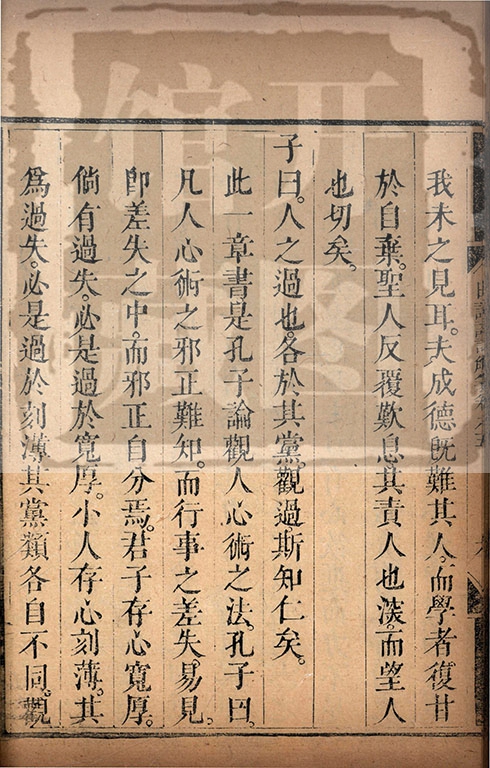 我未之見耳。夫成德旣難其人。而學者復甘
於自棄。聖人反覆歎息其責人也深。而望人
也切矣。
子曰。人之過也。各於其黨。觀過。斯知仁矣。
此一章書是孔子論觀人心術之法。孔子曰。
凡人心術之邪正難知。而行事之差失易見。
卽差失之中。而邪正自分焉。君子存心寬厚。
倘有過失。必是過於寬厚。小人存心刻薄。其
爲過失。必是過於刻薄其黨類各自不同。觀